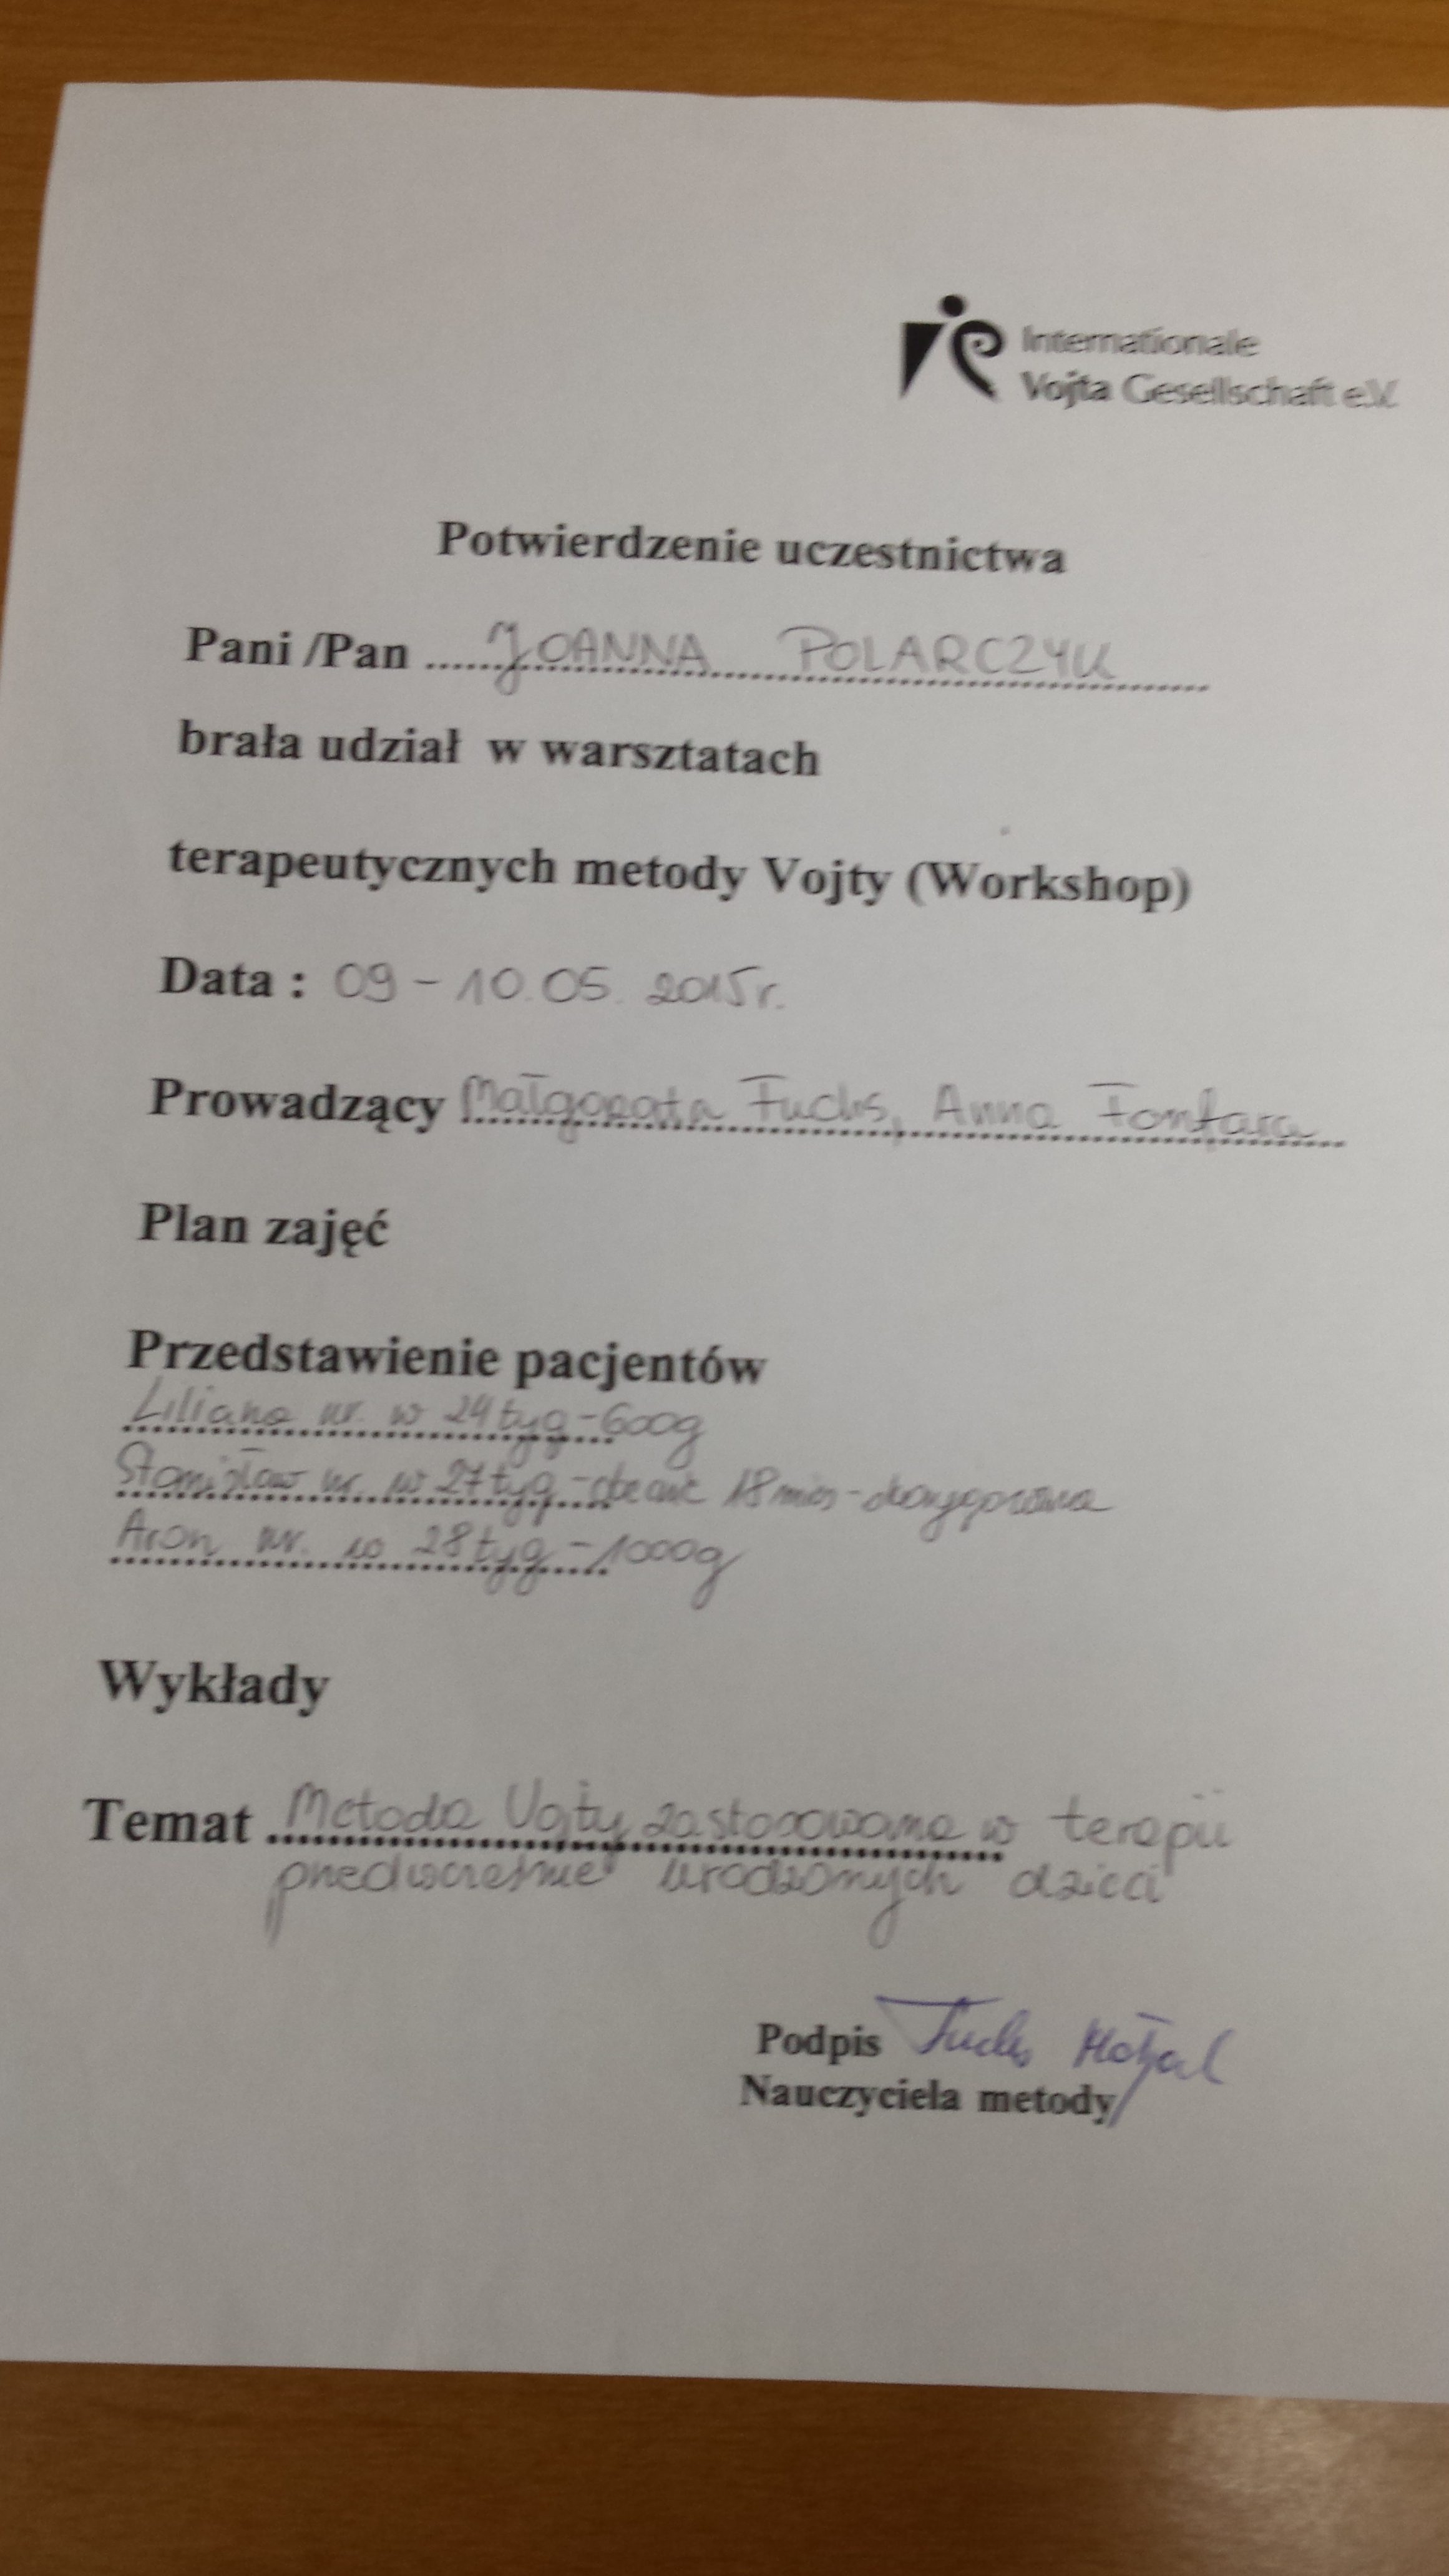 Internationale
Vojta Gesellschaft e.V.
Potwierdzenie uczestnictwa
Pani /Pan JOANNA POLARCZYK
brała udział w warsztatach
terapeutycznych metody Vojty (Workshop)
Data : 09 - 10.05. 2015r.
Prowadzący Małgorzata Fuchs, Anna Fomfara
Plan zajęć
Przedstawienie pacjentów
Liliana ur. w 24 tyg - 600g
Stanisław ur. w 27 tyg - obecnie 18 mies -
Aron ur. w 28 tyg - 1000g
Wykłady
Temat Metoda Vojty zastosowana w terapii
przedwcześnie urodzonych dzieci
Podpis Fuchs
Nauczyciela metody